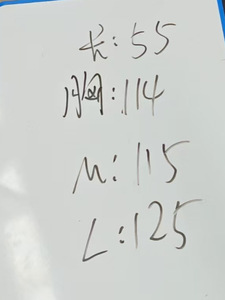 长:55
胸:114
M:115
L:125